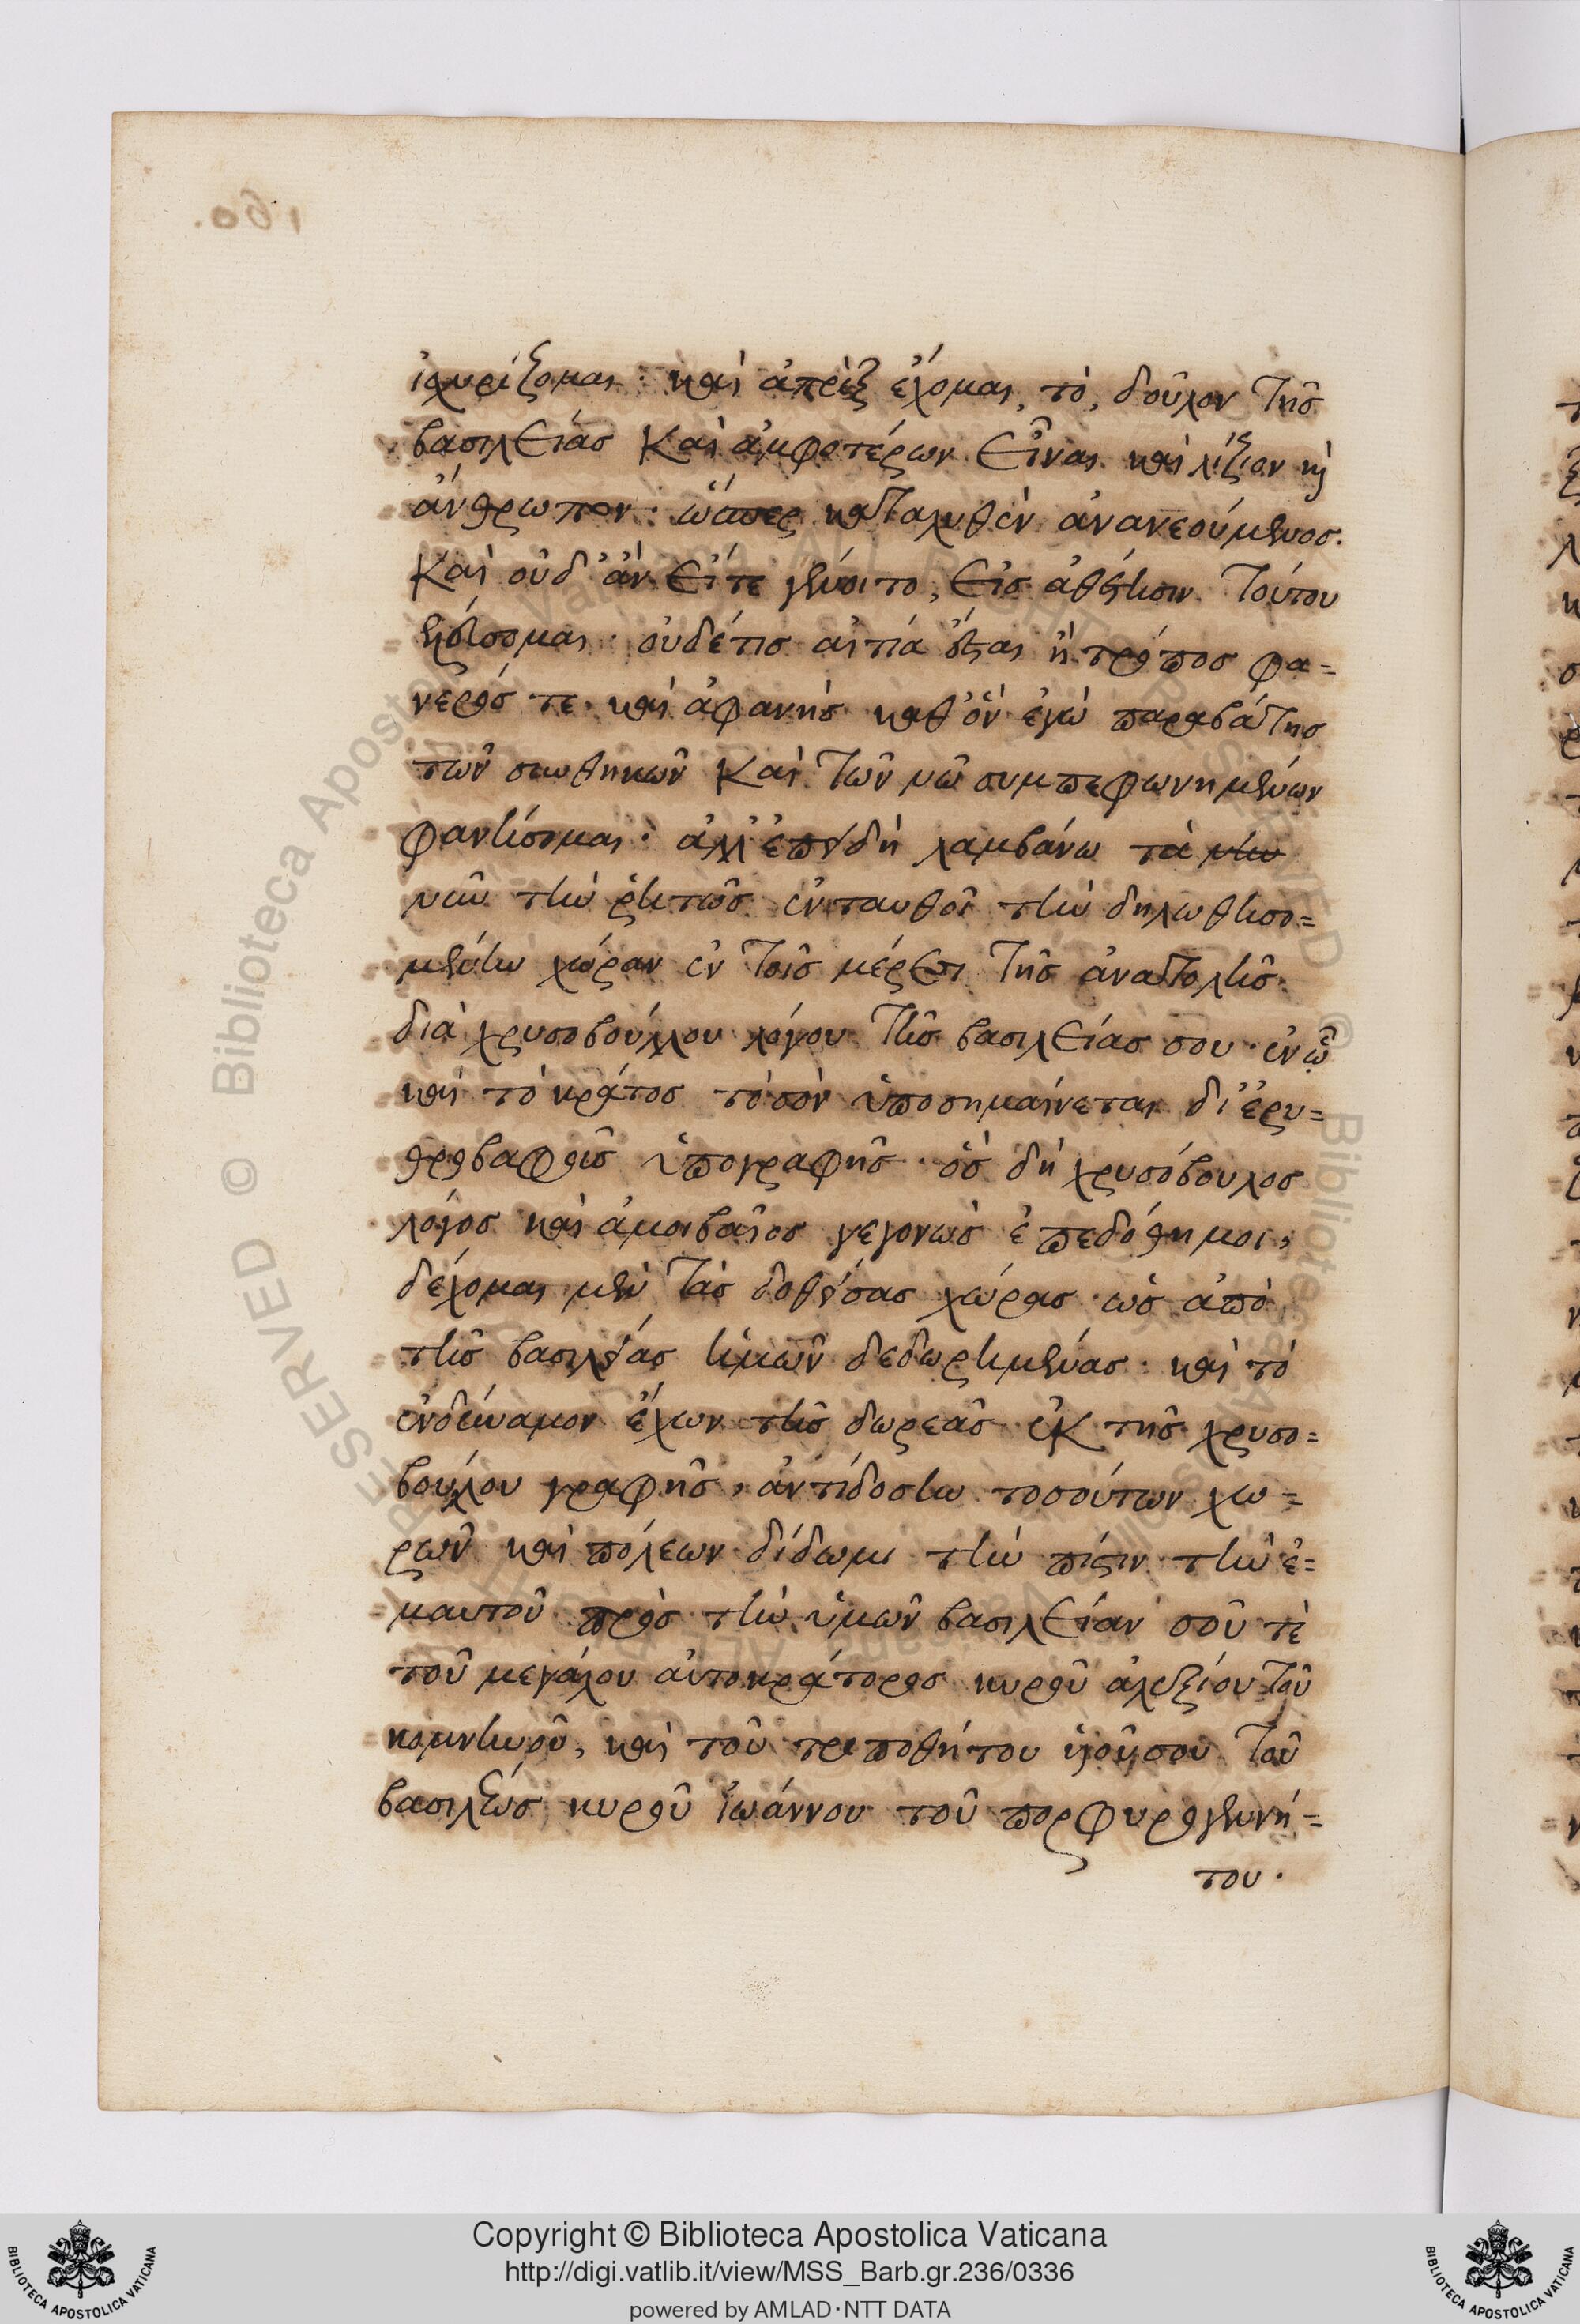 160.
ἰσχυρίζομαι· καὶ ἀπρὶξ ἔχομαι, τὸ, δοῦλον τῆς
βασιλείας καὶ ἀμφοτέρων εἶναι καὶ λίζιον καὶ
ἄνθρωπον· ὥσπερ καταλυθὲν ἀνανεούμενος.
Καὶ οὐδ' ἂν εἴ τε γένοιτο, εἰς ἀθέτισιν τούτου
οὐδέ τις αἰτία ἔσται ἢ τρόπος φα=
νερός τε καὶ ἀφανὴς καθ' ὃν ἐγὼ παραβάτης
τῶν συνθηκῶν καὶ τῶν νῦν συμπεφωνημένων
φανήσομαι· ἀλλ' ἐπειδὴ λαμβάνω τὰ νῦν
νῦν τὴν ῥητῶς ἐνταυθοῖ τὴν δηλωθησο=
μένην χώραν ἐν τοῖς μέρεσι τῆς ἀνατολῆς
διὰ χρυσοβούλλου λόγου τῆς βασιλείας σου· ἐν ᾧ
καὶ τὸ κράτος τὸ σὸν ὑποσημαίνεται δι' ἐρυ=
θροβαφοῦς ὑπογραφῆς· ὃς δὴ χρυσόβουλος
λόγος καὶ ἀμοιβαῖος γεγονὼς ἐπεδόθη μοι,
δέχομαι μὲν τὰς δοθείσας χώρας ὡς ἀπὸ
τῆς βασιλείας ἡμῶν δεδωρημένας· καὶ τὸ
ἐνδύναμον ἔχων τῆς δωρεᾶς ἐκ τῆς χρυσο=
βούλου γραφῆς, ἀντίδοσιν τοσούτων χω=
ρῶν καὶ πόλεων δίδωμι τὴν πίστιν τὴν ἐ=
μαυτοῦ πρὸς τὴν ὑμῶν βασιλείαν σοῦ τὲ
τοῦ μεγάλου αὐτοκράτορος κυροῦ ἀλεξίου τοῦ
κομνηνοῦ, καὶ τοῦ τριποθήτου υἱοῦ σου τοῦ
βασιλέως κυροῦ ἰωάννου τοῦ πορφυρογεννή=
του·
Copyright © Biblioteca Apostolica Vaticana
http://digi.vatlib.it/view/MSS_Barb.gr.236/0336
powered by AMLAD·NTT DATA